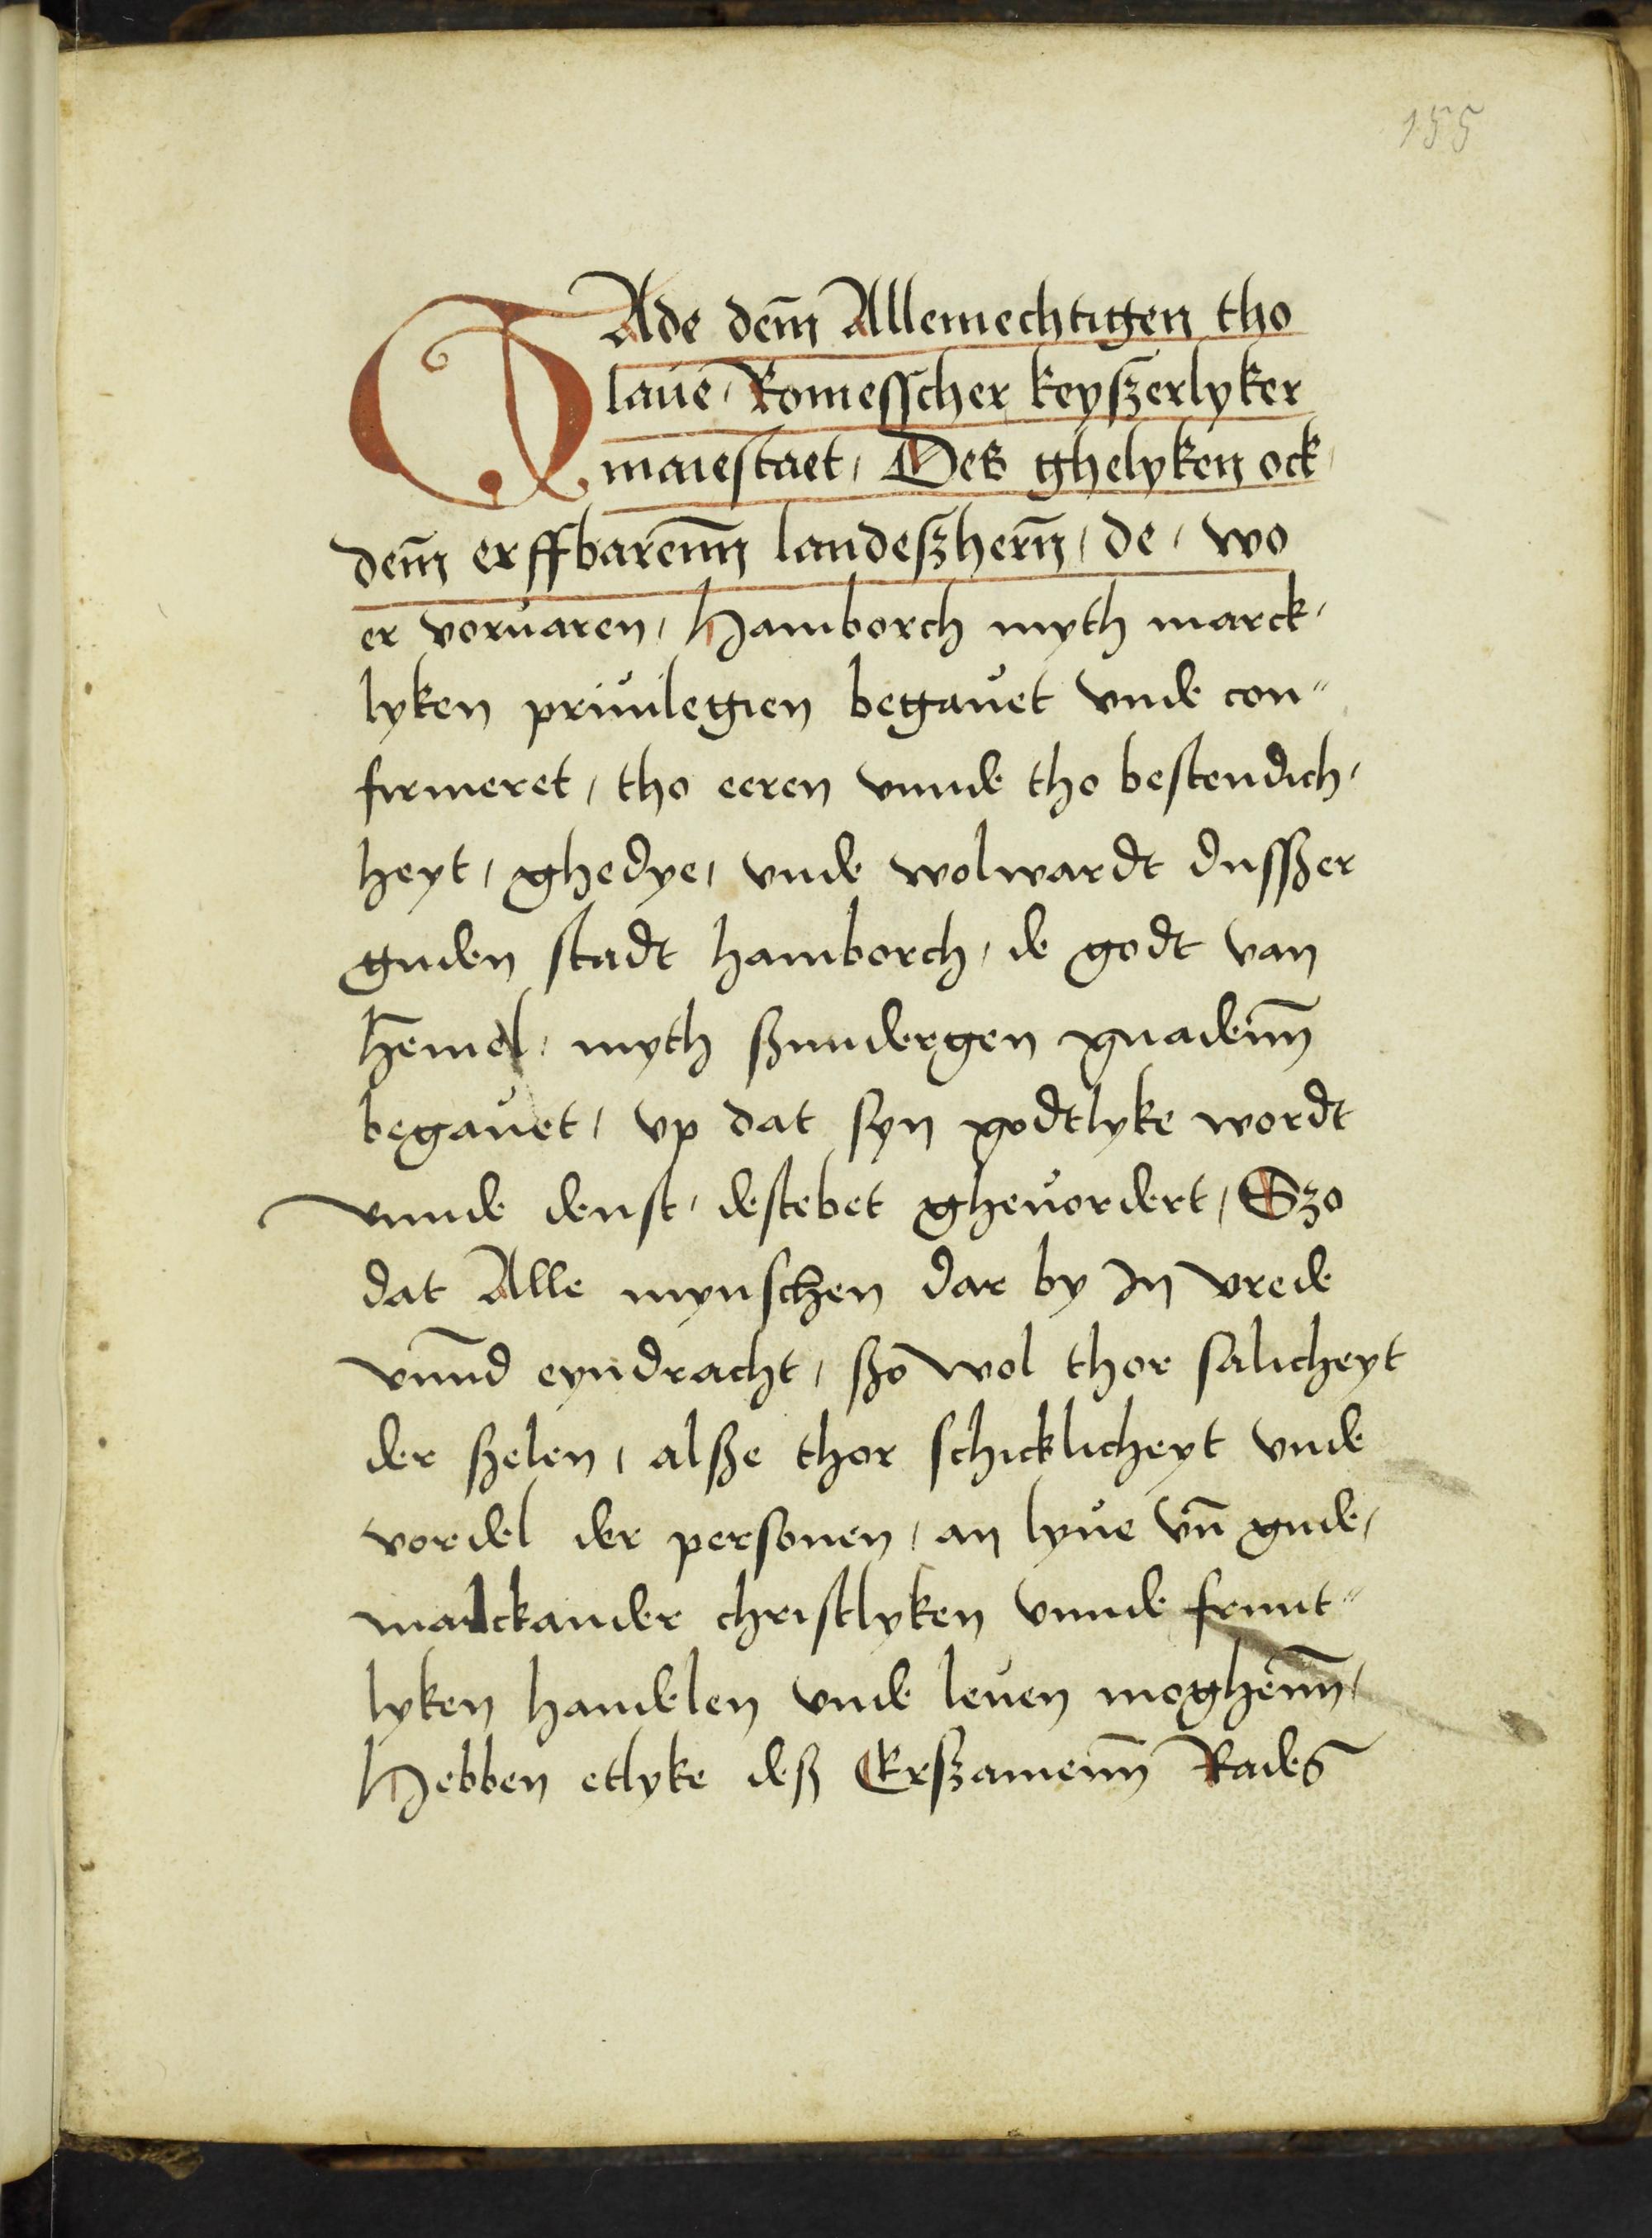 155
GAde dem̄ Allemechtigen tho
laue / Romesscher keyszerlyker
maiestaet / Des ghelyken ock /
dem̄ erffbarenn̄ landeszhern̄ / de / wo
er voruaren / Hamborch myth marck /
lyken priuilegien begauet vnde con"
firmeret / tho eeren vnnde tho bestendich /
heyt / ghedye / vnde wolwardt dusszer
guden stadt hamborch / de godt van
hēmel / myth szundergen gnadenn̄
begauet / vp dat syn godtlyke wordt
vnnde denst / destebet gheuordert / Szo
dat Alle mynschen dar by In vrede
vnn̄d eyndracht / szo wol thor salicheyt
der szelen / alsze thor schicklicheyt vnde
vordel der personen / an lyue vn̄ gude /
malckander christlyken vnnde frunt"
lyken handelen vnde leuen moghenn̄ /
Hebben etlyke desz Erszamenn̄ Rades